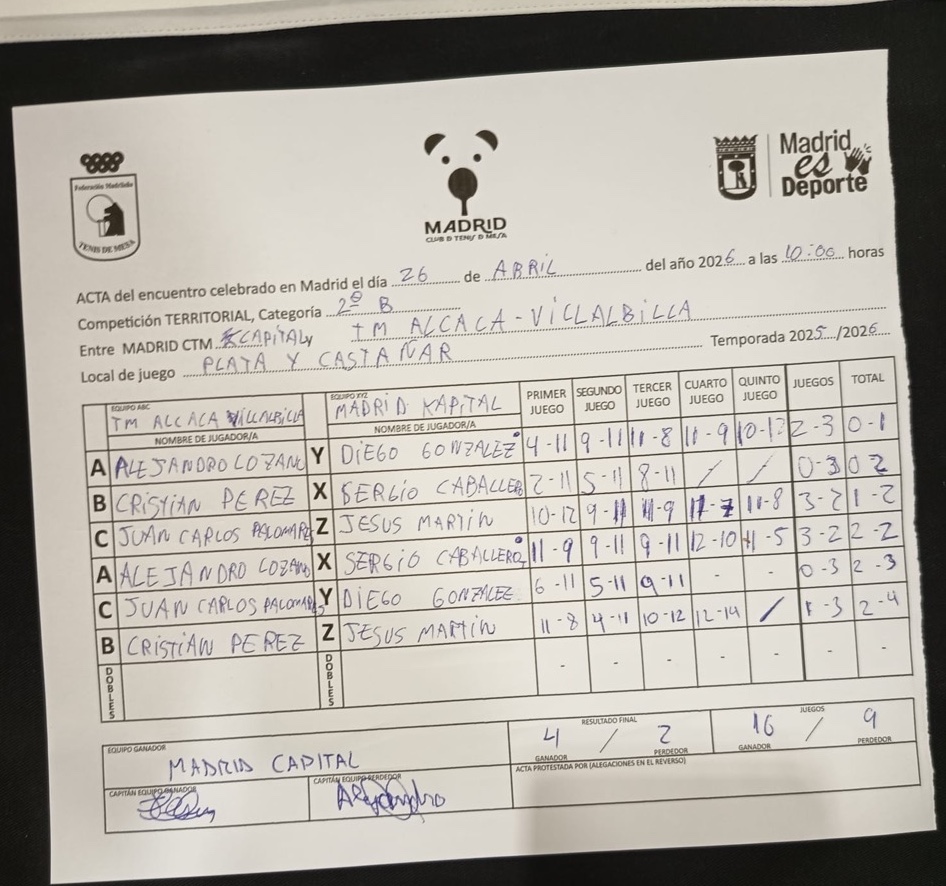 Federación Madrileña
TENIS DE MESA
MADRID
CLUB D TENIS D MESA
Madrid
es
Deporte
ACTA del encuentro celebrado en Madrid el día 26 de ABRIL del año 2026 a las 10:00 horas
Competición TERRITORIAL, Categoría 2º B
Entre MADRID CTM KAPITAL y TM ALCALA - VILLALBILLA
Local de juego PLATA Y CASTAÑAR Temporada 2025/2026
EQUIPO ABC TM ALCALA VILLALBILLA EQUIPO XYZ MADRID KAPITAL PRIMER JUEGO SEGUNDO JUEGO TERCER JUEGO CUARTO JUEGO QUINTO JUEGO JUEGOS TOTAL
NOMBRE DE JUGADOR/A NOMBRE DE JUGADOR/A
A ALEJANDRO LOZANO Y DIEGO GONZALEZ 4-11 9-11 11-8 11-9 10-12 2-3 0-1
B CRISTIAN PEREZ X SERGIO CABALLERO 2-11 5-11 8-11 / / 0-3 0 2
C JUAN CARLOS PALOMARES Z JESUS MARTIN 10-12 9-11 11-9 11-7 11-8 3-2 1-2
A ALEJANDRO LOZANO X SERGIO CABALLERO 11-9 9-11 9-11 12-10 11-5 3-2 2-2
C JUAN CARLOS PALOMARES Y DIEGO GONZALEZ 6-11 5-11 9-11 - - 0-3 2-3
B CRISTIAN PEREZ Z JESUS MARTIN 11-8 4-11 10-12 12-14 / 1-3 2-4
DOBLES DOBLES - - - - - - -
EQUIPO GANADOR MADRID CAPITAL
RESULTADO FINAL 4 / 2 JUEGOS 16 / 9
GANADOR PERDEDOR GANADOR PERDEDOR
CAPITÁN EQUIPO GANADOR CAPITÁN EQUIPO PERDEDOR ACTA PROTESTADA POR (ALEGACIONES EN EL REVERSO)
Alejandro